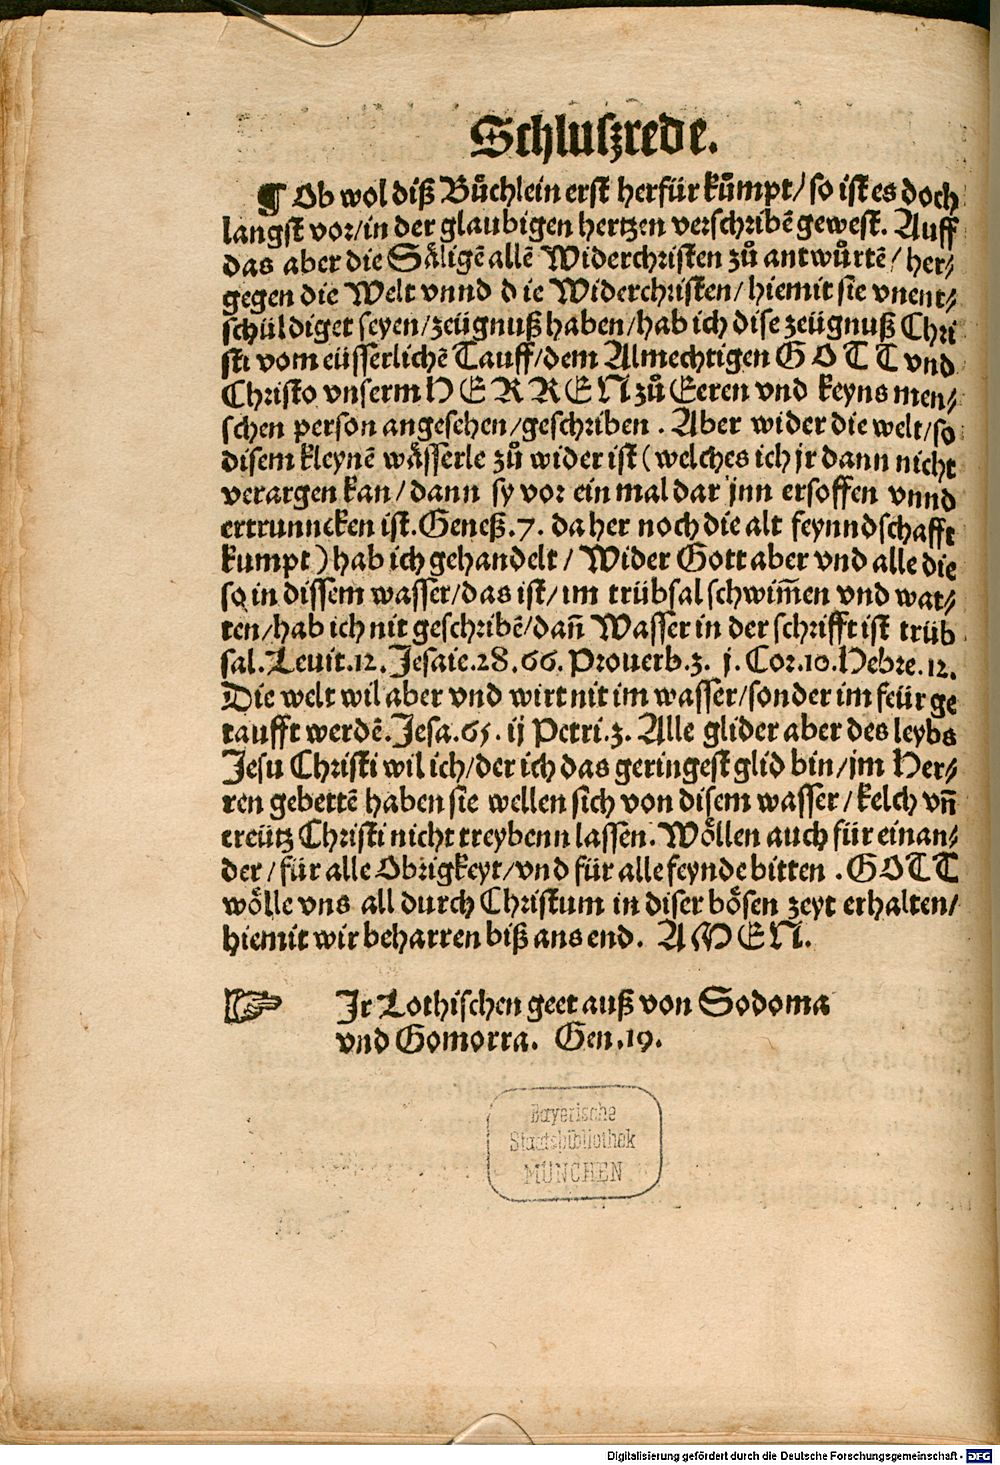 Schluszrede.
¶ Ob wol diß Bůchlein erst herfür kůmpt/ so ist es doch
langst vor/in der glaubigen hertzen verschribẽ gewest. Auff
das aber die Säligẽ allẽ Widerchristen zů antwůrtẽ/ her⸗
gegen die Welt vnnd die Widerchristen/ hiemit sie vnent⸗
schüldiget seyen/zeügnuß haben/hab ich dise zeügnuß Chri
sti vom eüsserlichẽ Tauff/dem Almechtigen GOTT vnd
Christo vnserm HERREN zů Eeren vnd keyns men⸗
schen person angesehen/geschriben. Aber wider die welt/so
disem kleynẽ wässerle zů wider ist (welches ich jr dann nicht
verargen kan/ dann sy vor ein mal dar jnn ersoffen vnnd
ertrunncken ist. Geneß.7. da her noch die alt feynndschafft
kumpt) hab ich gehandelt/ Wider Gott aber vnd alle die
so in dissem wasser/das ist/ im trübsal schwim̃en vnd wat⸗
ten/hab ich nit geschribẽ/dañ Wasser in der schrifft ist trüb
sal. Leuit.12. Jesaie.28.66. Prouerb.3. j. Cor.10. Hebre.12.
Die welt wil aber vnd wirt nit im wasser/sonder im feür ge
taufft werdẽ. Jesa.65. ij Petri.3. Alle glider aber des leybs
Jesu Christi wil ich/der ich das geringest glid bin/im Her⸗
ren gebettẽ haben sie wellen sich von disem wasser/ kelch vñ
creütz Christi nicht treybenn lassen. Wöllen auch für einan⸗
der/ für alle Obrigkeyt/vnd für alle feynde bitten. GOTT
wölle vns all durch Christum in diser bösen zeyt erhalten/
hiemit wir beharren biß ans end. AMEN.
☞ Jr Lothischen geet auß von Sodoma
vnd Gomorra. Gen.19.
Bayerische
Staatsbibliothek
MÜNCHEN
Digitalisierung gefördert durch die Deutsche Forschungsgemeinschaft - DFG